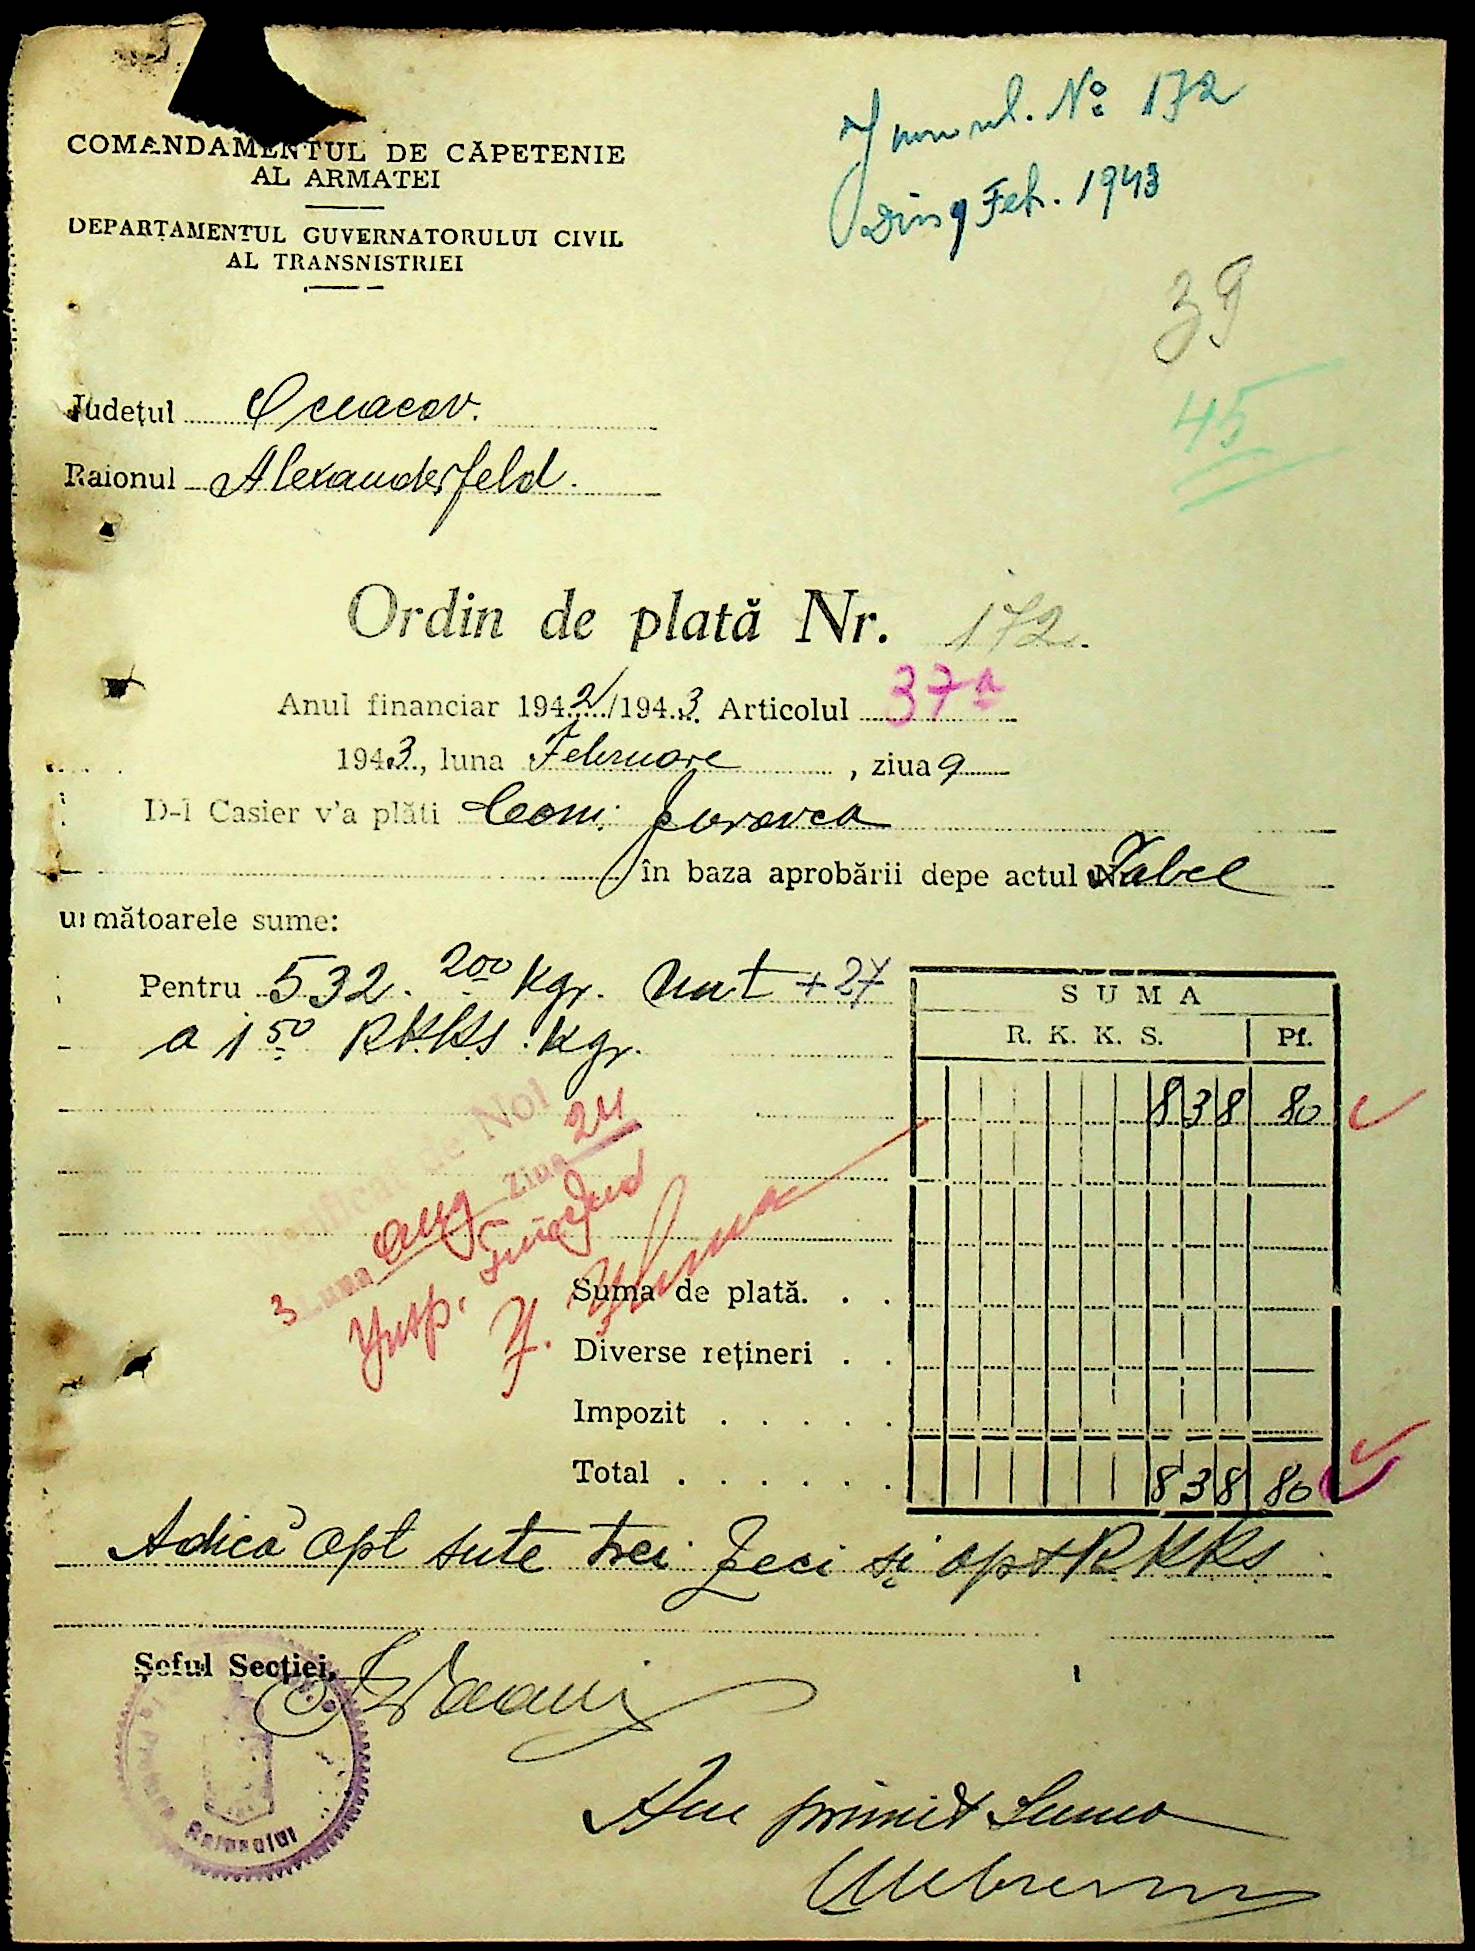 COMANDAMENTUL DE CĂPETENIE
AL ARMATEI
DEPARTAMENTUL GUVERNATORULUI CIVIL
AL TRANSNISTRIEI
Jurnal. No 172
Din 9 Feb. 1943
39
45
Județul Oceacov.
Raionul Alexanderfeld.
Ordin de plată Nr. 172.
Anul financiar 1942/1943 Articolul 37a
1943, luna Februare, ziua 9
D-l Casier v'a plăti Com. Juravca
în baza aprobării depe actul Tabel
următoarele sume:
Pentru 532.200 kgr. Unt +27
a 1 50 RKKS. kgr.
SUMA
R. K. K. S. Pf.
838 80
Verificat de Noi
3 Luna aug Ziua 24
Insp.
Suma de plată. . .
Diverse rețineri . .
Impozit . . . . .
Total . . . . . . 838 80
Adică opt sute trei zeci și opt RKKs.
Șeful Secției,
Raionului
Am primit Suma